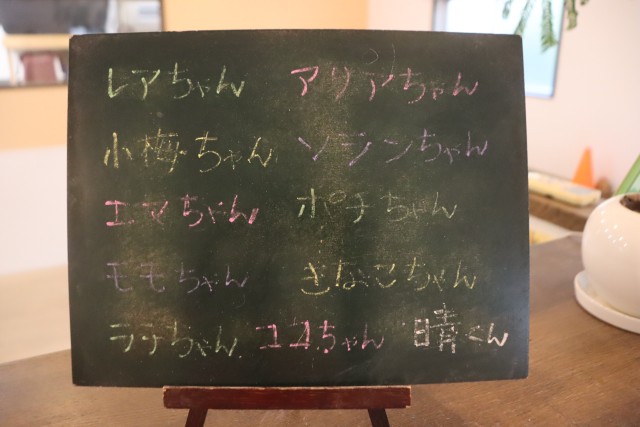 レアちゃん アリアちゃん
小梅ちゃん ソランちゃん
エマちゃん ポチちゃん
モモちゃん きなこちゃん
ラテちゃん ユユちゃん 晴くん